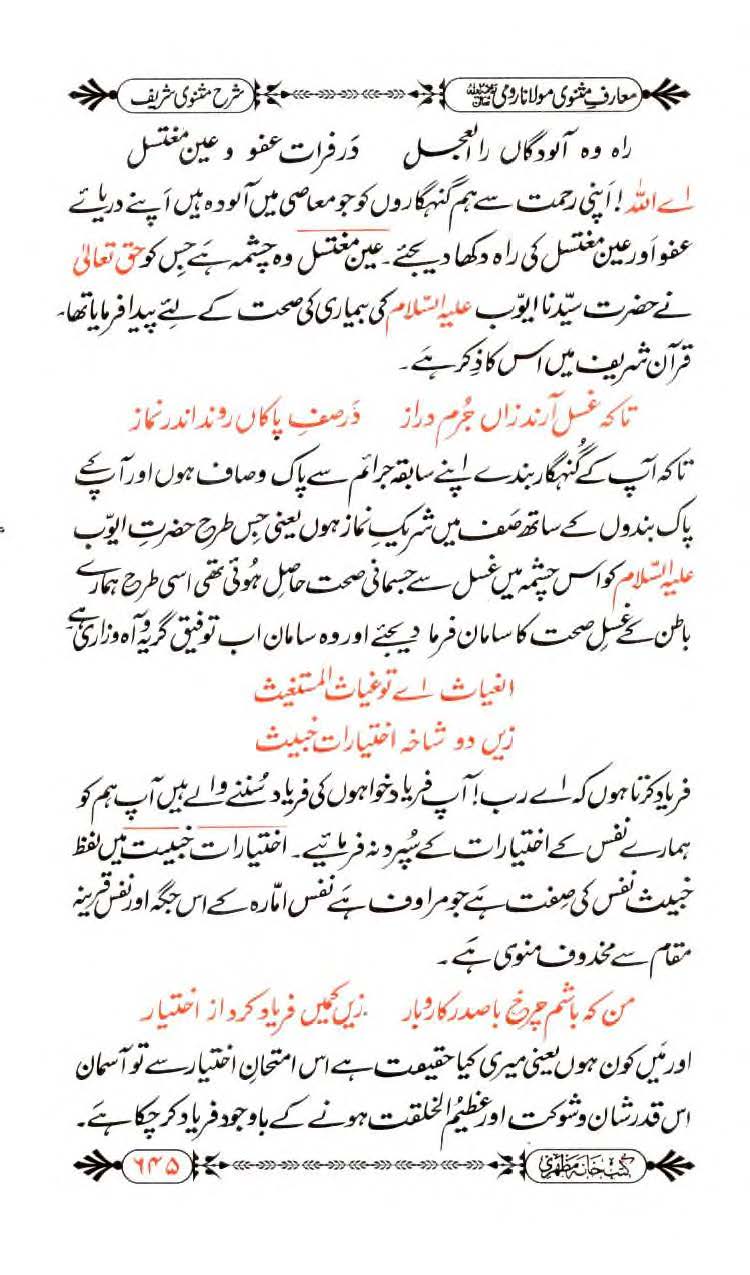 معارفِ مثنوی مولانا رومی شرح مثنوی شریف
راہ وہ آلودگاں را العجل دَر فرات عفو و عین مغتسل
اے اللہ! اَپنی رحمت سے ہم گنہگاروں کو جو معاصی میں آلودہ ہیں اَپنے دریائے
عفو اَور عین مغتسل کی راہ دکھا دیجئے۔ عین مغتسل وہ چشمہ ہے جس کو حق تعالیٰ
نے حضرت سیّدنا ایّوب علیہ السّلام کی بیماری کی صحت کے لئے پیدا فرمایا تھا۔
قرآن شریف میں اس کا ذِکر ہَے۔
تاکہ غسل آرند زاں جُرم دراز دَر صفِ پاکاں روند اندر نماز
تاکہ آپ کے گنہگار بندے اپنے سابقہ جرائم سے پاک وصاف ہوں اور آپ کے
پاک بندوں کے ساتھ صَف میں شریکِ نماز ہوں یعنی جس طرح حضرتِ ایّوب
علیہ السّلام کو اس چشمہ میں غسل سے جسمانی صحت حاصل ہُوئی تھی اسی طرح ہمارے
باطن کے غسلِ صحت کا سامان فرما دیجئے اور وہ سامان اب توفیق گریہ و آہ وزاری ہے۔
الغیاث اے تو غیاث المستغیث
زیں دو شاخہ اختیارات خبیث
فریاد کرتا ہوں کہ اے رب! آپ فریاد خواہوں کی فریاد سُننے والے ہیں آپ ہم کو
ہمارے نفس کے اختیارات کے سُپرد نہ فرمائیے۔ اختیارات خبیث میں لفظ
خبیث نفس کی صِفت ہَے جو مرادف ہَے نفس امّارہ کے اس جگہ اور نفس قرینہ
مقام سے مخذوف منوی ہَے۔
من کہ باشم چرخ باصد کاروبار زیں کمیں فریاد کرد از اختیار
اور مَیں کون ہوں یعنی میری کیا حقیقت ہے اس امتحانِ اختیار سے تو آسمان
اس قدر شان و شوکت اور عظیمُ الخلقت ہونے کے باوجود فریاد کر چکا ہے۔
کتب خانہ مظہری ۶۴۵